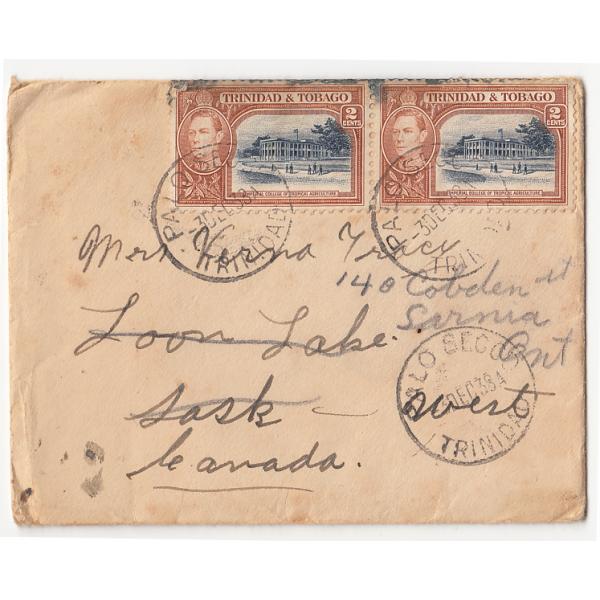 TRINIDAD & TOBAGO
2
CENTS
IMPERIAL COLLEGE OF TROPICAL AGRICULTURE
TRINIDAD & TOBAGO
2
CENTS
IMPERIAL COLLEGE OF TROPICAL AGRICULTURE
PALO SE
3DEC38
TRINIDAD
PALO SE
3DEC38
TRINIDAD
Mrs Verna Tracy
140 Cobden st
Sarnia
Ont
Loon Lake.
Sask - West
Canada.
PALO SECO
DEC38
TRINIDAD